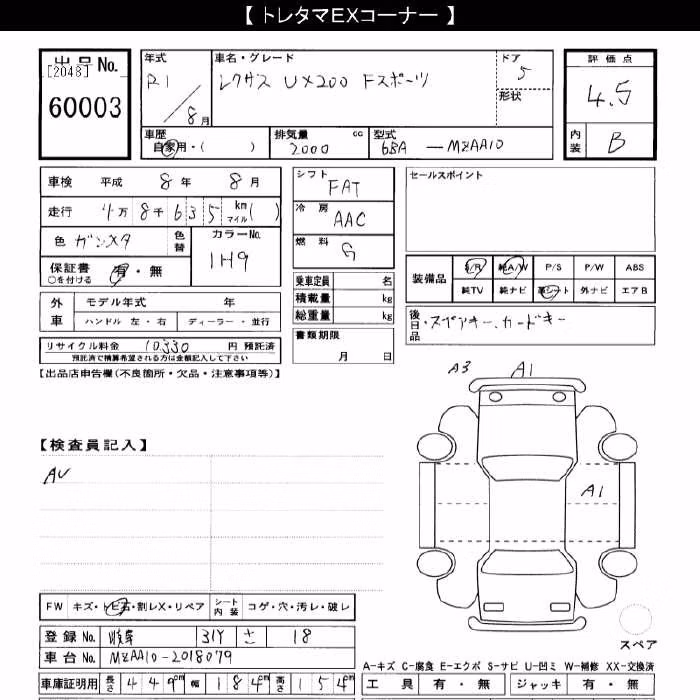 【 トレタマEXコーナー 】
出品No.
[2048]
60003
年式
R1/8月
車名・グレード
レクサス UX200 Fスポーツ
ドア
5
形状
評価点
4.5
車歴
自家用・( )
排気量 cc
2000
型式
6BA-MZAA10
内装
B
車検 平成 8年 8月
走行 4万8千635 km マイル( )
色 ガンメタ
色替
カラーNo.
1H9
保証書 有・無
○を付ける
外車
モデル年式 年
ハンドル 左・右 ディーラー・並行
リサイクル料金 10,330 円 預託済
預託済で精算希望される方は金額記入して下さい
シフト
FAT
冷房
AAC
燃料
G
乗車定員 名
積載量 kg
総重量 kg
書類期限
月 日
セールスポイント
装備品
S/R 純A/W P/S P/W ABS
純TV 純ナビ 革シート 外ナビ エアB
後日品
・スペアキー、カードキー
【出品店申告欄(不良箇所・欠品・注意事項等)】
A3 A1
【検査員記入】
AV
A1
FW キズ・トビ石・割レX・リペア シート内装 コゲ・穴・汚レ・破レ
登録No. 31Y さ 18
車台No. MZAA10-2018079
スペア
A-キズ C-腐食 E-エクボ S-サビ U-凹ミ W-補修 XX-交換済
車庫証明用 長さ 449cm 幅 184cm 高さ 154cm
工具 有・無 ジャッキ 有・無